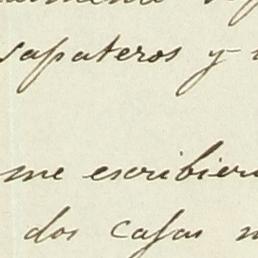 zapateros y
me escribier
dos casas